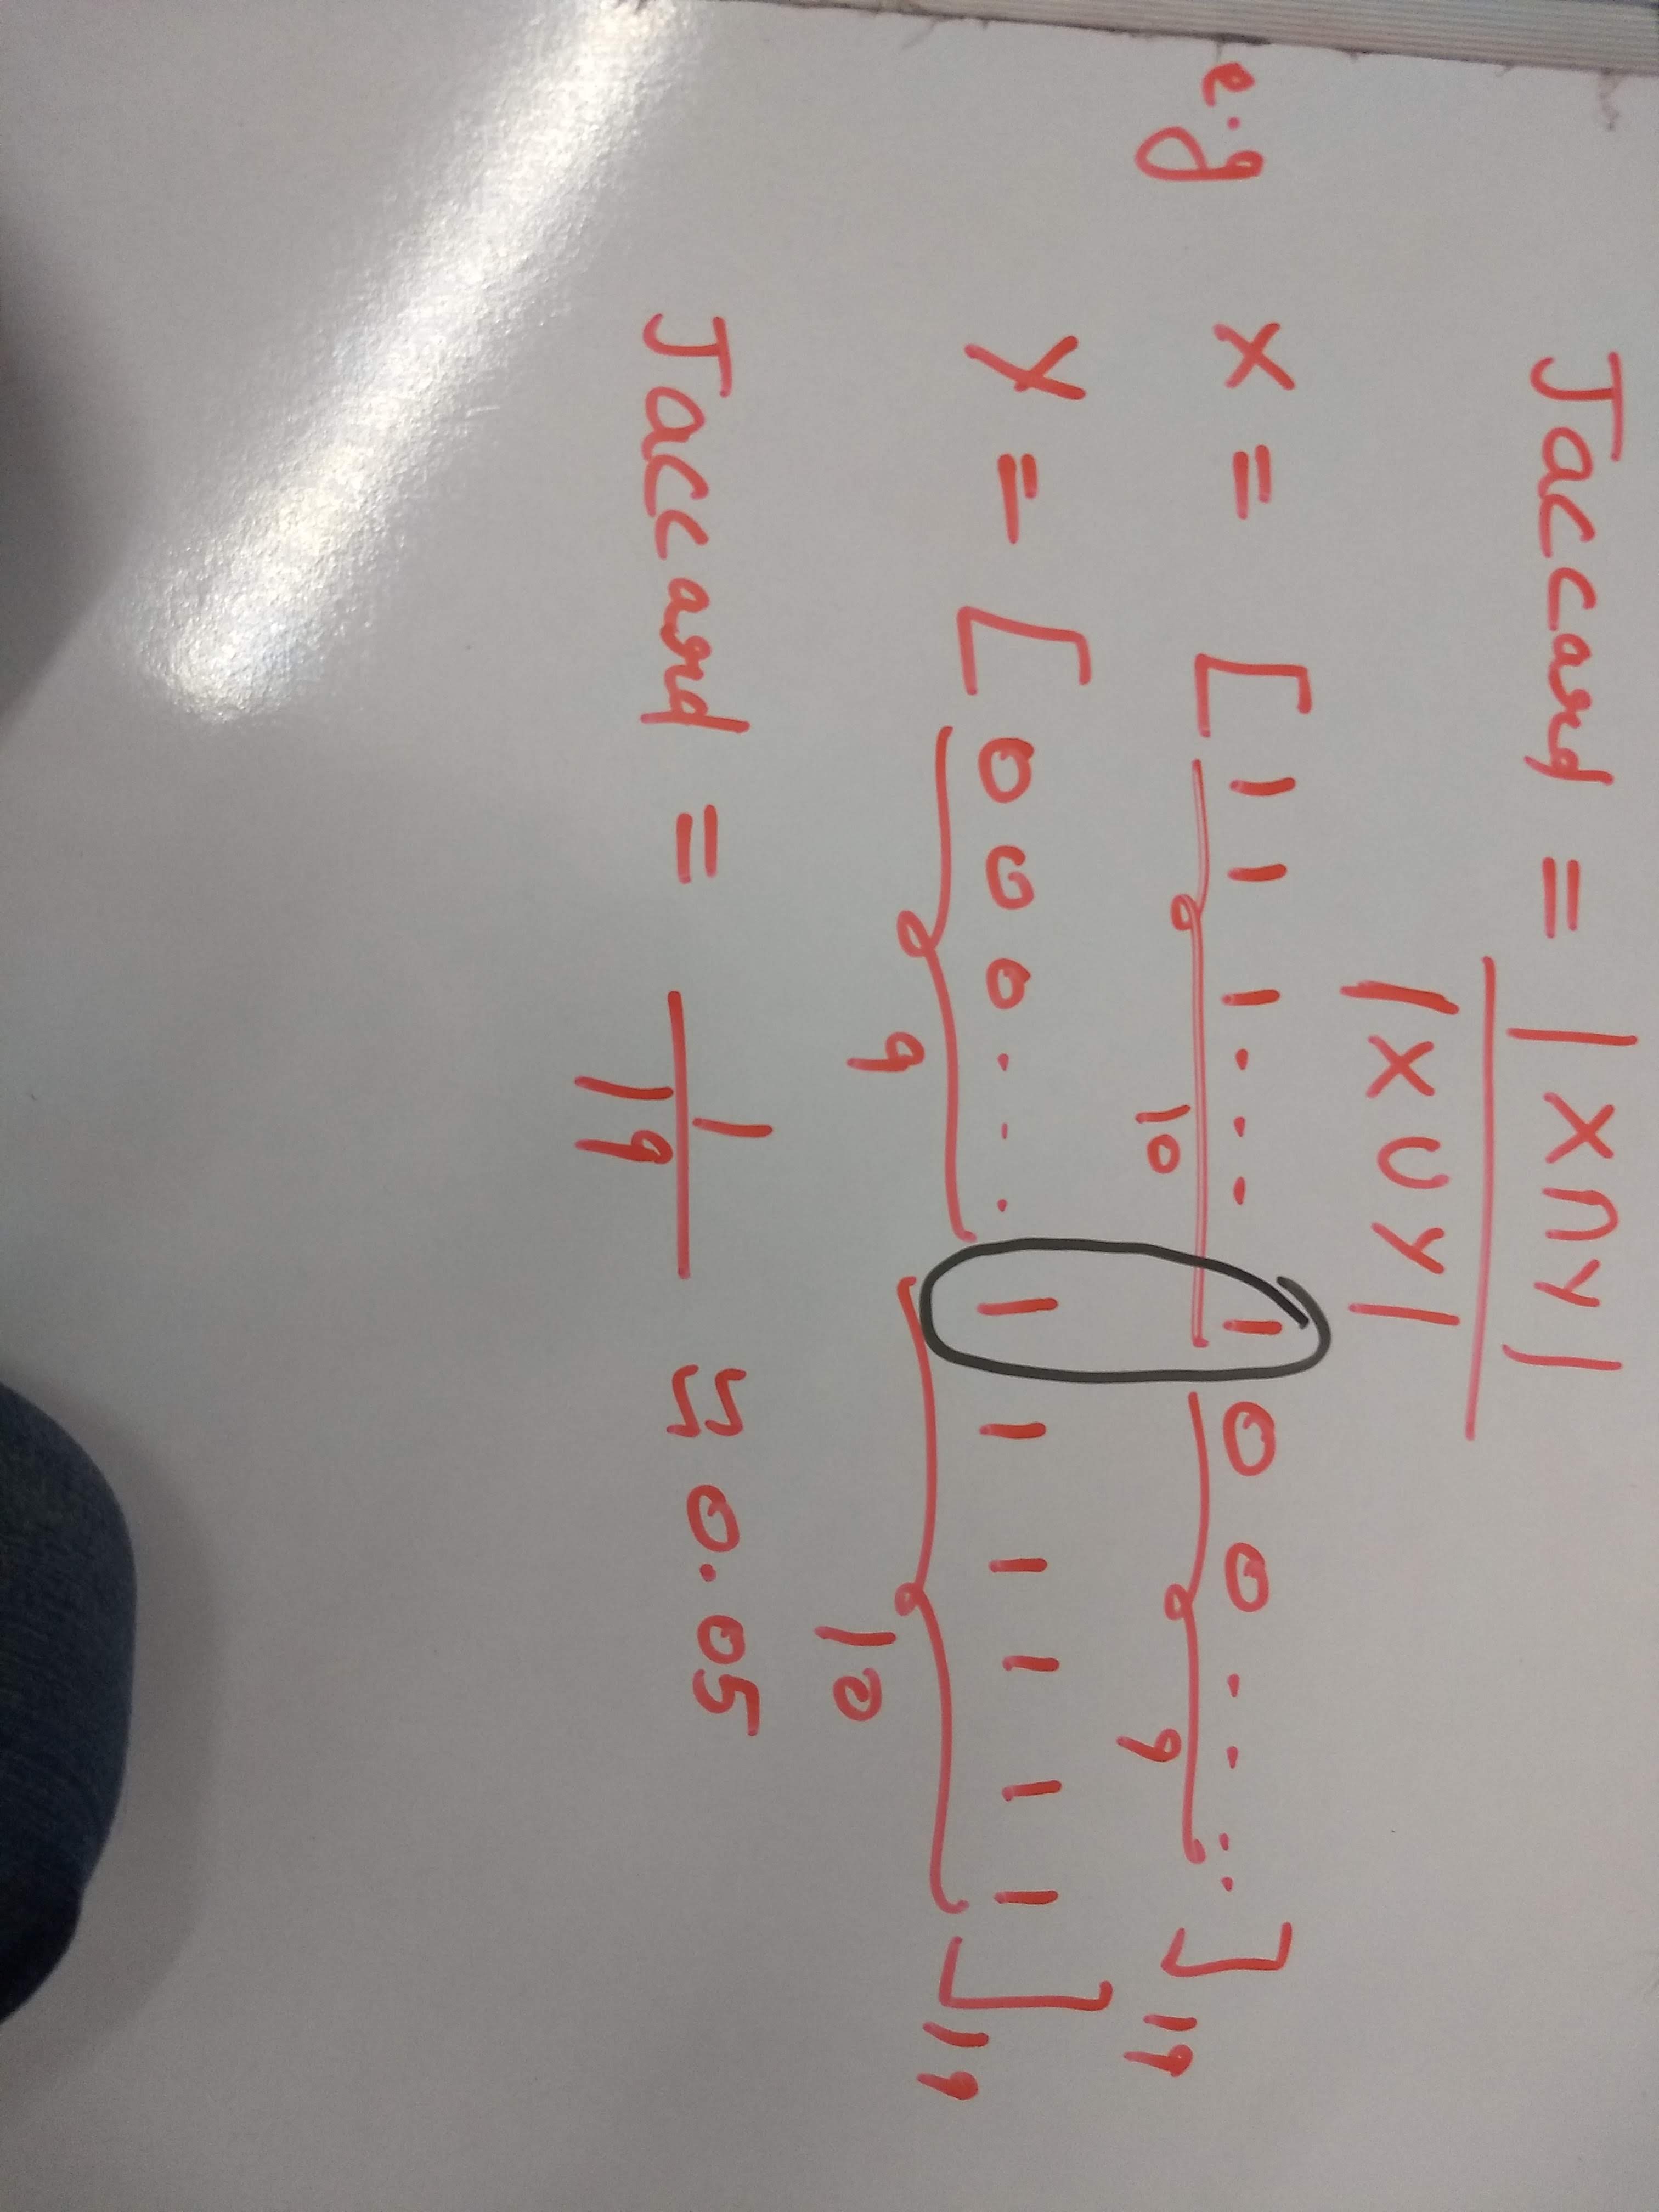 Jaccard = |X∩Y|
|X∪Y|
e.g X = [1 1 1 . . . 1 0 0 . . . .]19
10 9
Y = [0 0 0 . . . 1 1 1 1 1 1]19
9 10
Jaccard = 1/19 ≈ 0.05